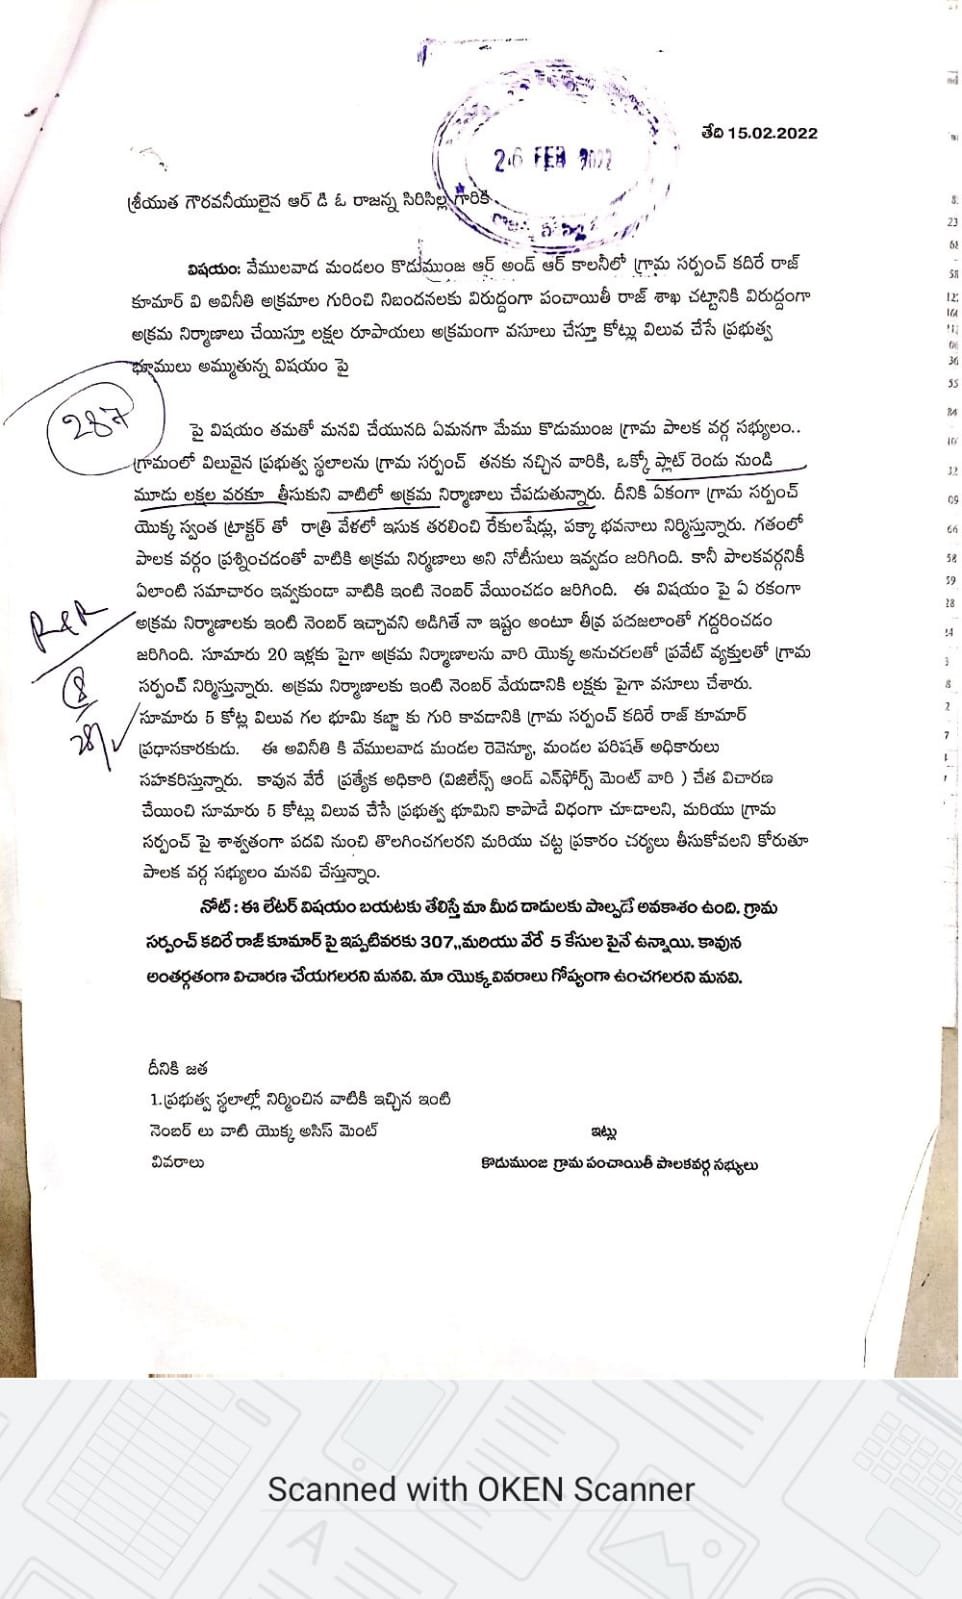 తేది 15.02.2022
26 FEB 2022
శ్రీయుత గౌరవనీయులైన ఆర్ డి ఓ రాజన్న సిరిసిల్ల గారికి
విషయం: వేములవాడ మండలం కొడుముంజ ఆర్ అండ్ ఆర్ కాలనీలో గ్రామ సర్పంచ్ కదిరే రాజ్
కూమార్ వి అవినీతి అక్రమాల గురించి నిబందనలకు విరుద్దంగా పంచాయితీ రాజ్ శాఖ చట్టానికి విరుద్దంగా
అక్రమ నిర్మాణాలు చేయిస్తూ లక్షల రూపాయలు అక్రమంగా వసూలు చేస్తూ కోట్లు విలువ చేసే ప్రభుత్వ
భూములు అమ్ముతున్న విషయం పై
287
పై విషయం తమతో మనవి చేయునది ఏమనగా మేము కొడుముంజ గ్రామ పాలక వర్గ సభ్యులం..
గ్రామంలో విలువైన ప్రభుత్వ స్థలాలను గ్రామ సర్పంచ్ తనకు నచ్చిన వారికి, ఒక్కో ప్లాట్ రెండు నుండి
మూడు లక్షల వరకూ తీసుకుని వాటిలో అక్రమ నిర్మాణాలు చేపడుతున్నారు. దీనికి ఏకంగా గ్రామ సర్పంచ్
యొక్క స్వంత ట్రాక్టర్ తో రాత్రి వేళలో ఇసుక తరలించి రేకులషేడ్లు, పక్కా భవనాలు నిర్మిస్తున్నారు. గతంలో
పాలక వర్గం ప్రశ్నించడంతో వాటికి అక్రమ నిర్మణాలు అని నోటీసులు ఇవ్వడం జరిగింది. కానీ పాలకవర్గనికీ
ఏలాంటి సమాచారం ఇవ్వకుండా వాటికి ఇంటి నెంబర్ వేయించడం జరిగింది. ఈ విషయం పై ఏ రకంగా
అక్రమ నిర్మాణాలకు ఇంటి నెంబర్ ఇచ్చావని అడిగితే నా ఇష్టం అంటూ తీవ్ర పదజలాంతో గద్దరించడం
జరిగింది. సూమారు 20 ఇళ్లకు పైగా అక్రమ నిర్మాణాలను వారి యొక్క అనుచరలతో ప్రవేట్ వ్యక్తులతో గ్రామ
సర్పంచ్ నిర్మిస్తున్నారు. అక్రమ నిర్మాణాలకు ఇంటి నెంబర్ వేయడానికి లక్షకు పైగా వసూలు చేశారు.
సూమారు 5 కోట్ల విలువ గల భూమి కబ్జా కు గురి కావడానికి గ్రామ సర్పంచ్ కదిరే రాజ్ కూమార్
ప్రధానకారకుడు. ఈ అవినీతి కి వేములవాడ మండల రెవెన్యూ, మండల పరిషత్ అధికారులు
సహకరిస్తున్నారు. కావున వేరే ప్రత్యేక అధికారి (విజిలేన్స్ ఆండ్ ఎన్‌ఫోర్స్ మెంట్ వారి ) చేత విచారణ
చేయించి సూమారు 5 కోట్లు విలువ చేసే ప్రభుత్వ భూమిని కాపాడే విధంగా చూడాలని, మరియు గ్రామ
సర్పంచ్ పై శాశ్వతంగా పదవి నుంచి తొలగించగలరని మరియు చట్ట ప్రకారం చర్యలు తీసుకోవలని కోరుతూ
పాలక వర్గ సభ్యులం మనవి చేస్తున్నాం.
R&R
8
28/
నోట్ : ఈ లేటర్ విషయం బయటకు తేలిస్తే మా మీద దాడులకు పాల్పడే అవకాశం ఉంది. గ్రామ
సర్పంచ్ కదిరే రాజ్ కూమార్ పై ఇప్పటివరకు 307,,మరియు వేరే 5 కేసుల పైనే ఉన్నాయి. కావున
అంతర్గతంగా విచారణ చేయగలరని మనవి. మా యొక్క వివరాలు గోప్యంగా ఉంచగలరని మనవి.
దీనికి జత
1.ప్రభుత్వ స్థలాల్లో నిర్మించిన వాటికి ఇచ్చిన ఇంటి
నెంబర్ లు వాటి యొక్క అసిస్ మెంట్
వివరాలు
ఇట్లు
కొడుముంజ గ్రామ పంచాయితీ పాలకవర్గ సభ్యులు
Scanned with OKEN Scanner